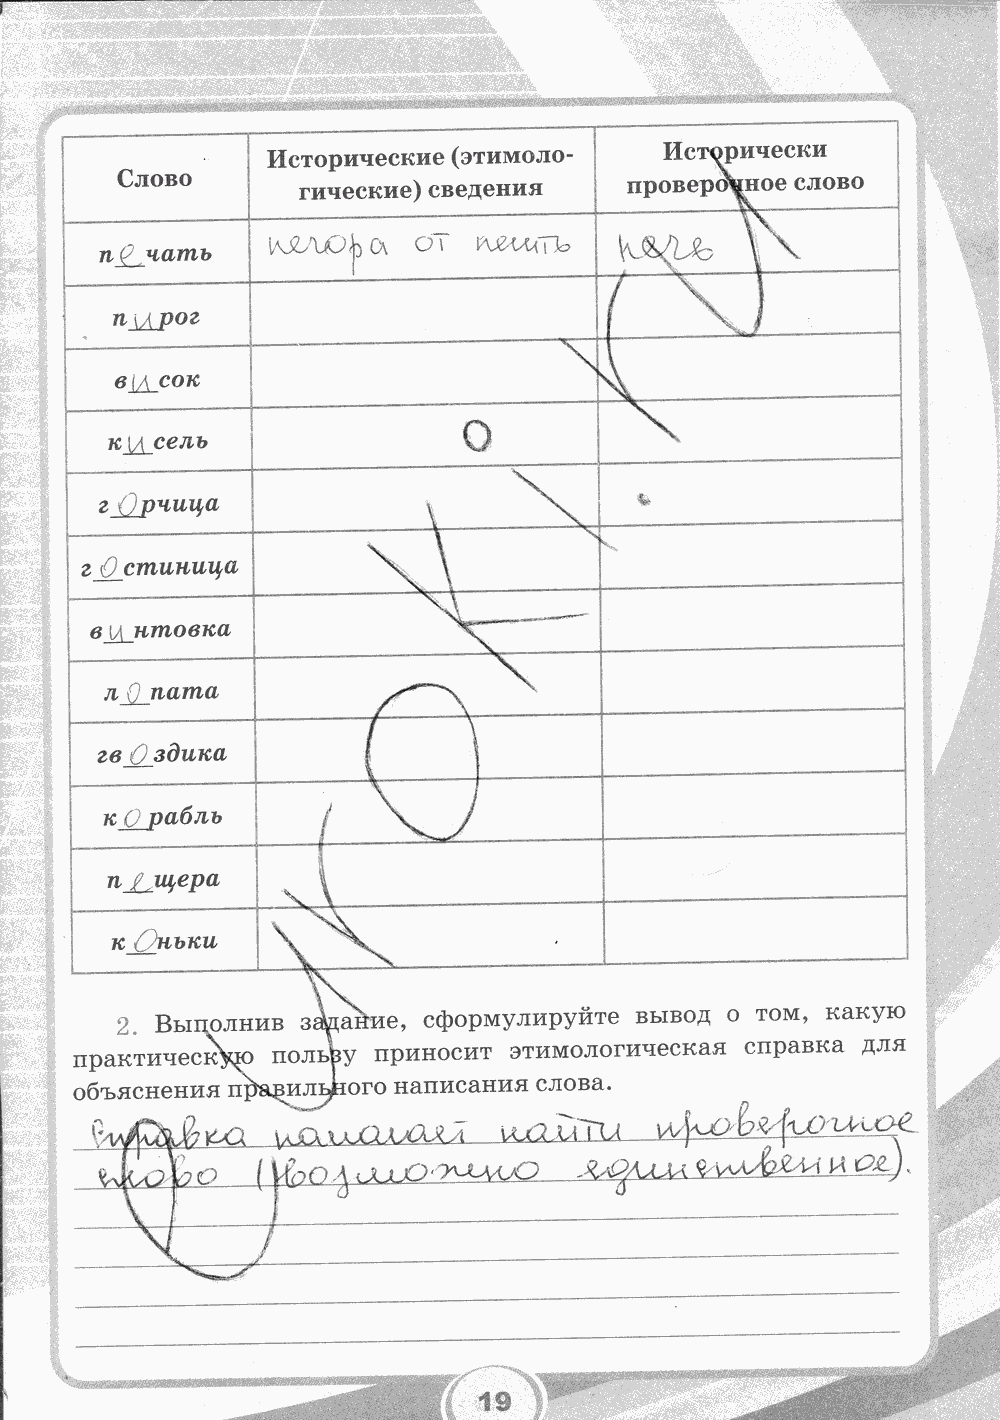 Слово
Исторические (этимоло-
гические) сведения
Исторически
проверочное слово
печать
печора от пешть
печь
пирог
висок
кисель
горчица
гостиница
винтовка
лопата
гвоздика
корабль
пещера
коньки
2. Выполнив задание, сформулируйте вывод о том, какую
практическую пользу приносит этимологическая справка для
объяснения правильного написания слова.
Справка помогает найти проверочное
слово (возможно единственное).
19